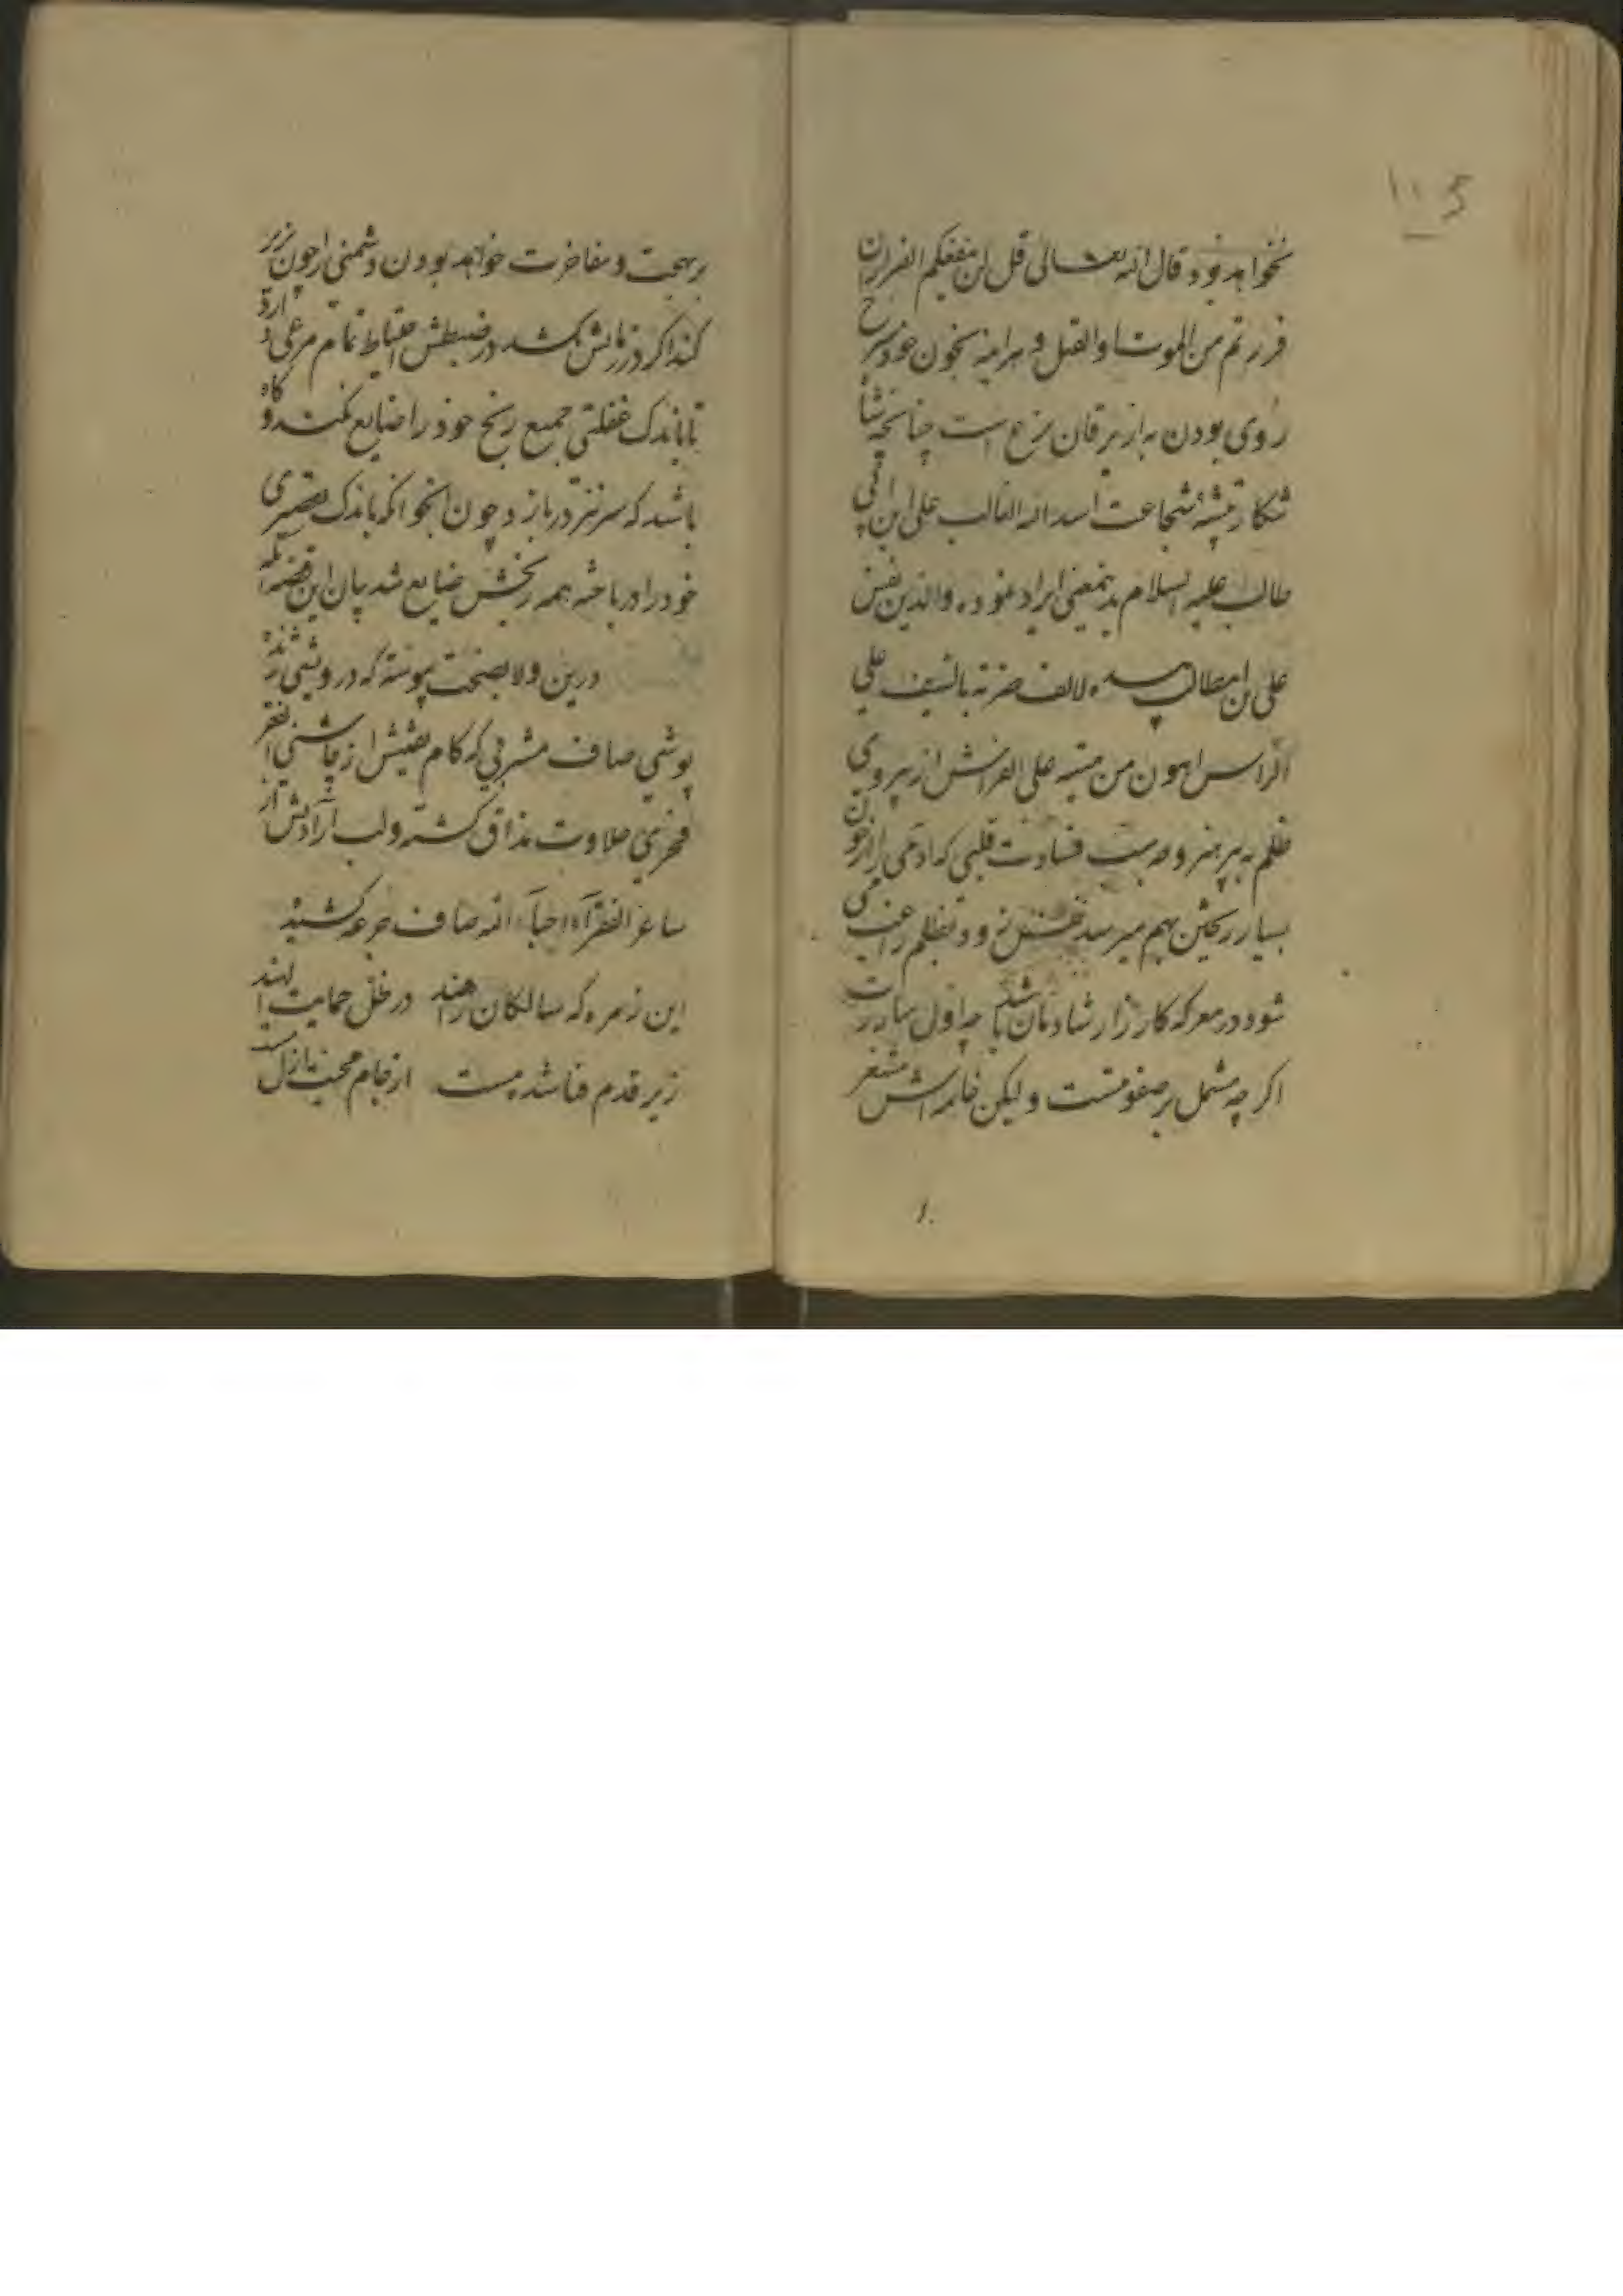 نخواهد بود قال الله تعالی قل لن ینفعکم الفرار ان
فررتم من الموت او القتل و هرآینه بخون خود سرخ
روی بودن به از یرقان نزع است چنانچه شأ
شکار بیشهٔ شجاعت اسد الله الغالب علی ابن ابی
طالب علیه السلام بدینمعنی ایراد نموده والذین نفس
علی ابن ابیطالب بیده لالف ضربة بالسیف علی
الراس اهون من میتة علی الفراش از پیروی
ظلم به پرهیز و چه بسبب قساوت قلبی که آدمی را از خون
بسیار ریختن بهم میرسد زود تظلم راغب می
شود در معرکه کارزار شادمان باشد چه اول مبارزت
اگر چه مشتمل بر صفوتست ولیکن خاتمه اش مشعر
بر بهجت و مفاخرت خواهد بودن دشمنی را چون زیر
کند اگر در زمانش نکشد در ضبطش احتیاط تمام مرعی دارد
تا باندک غفلتی جمیع رنج خود را ضایع نکند و گاه
باشد که سر نیز دربازد چون که باندک تقصیری
خود را درباخته همه رنجش ضایع شد بیان این قضیه آنکه
درین ولا بصحت پیوسته که درویشی ژنده
پوشی صاف مشربی که کام یقینش از چاشنی الفقر
فخری حلاوت مذاق گشته و لب آزادیش از
ساغر الفقراء احباء الله صاف جرعه کشیده
این زمره که سالکان راهند در ظل حمایت الهند
زیر قدم فنا شده پست از جام محبت ازل مست